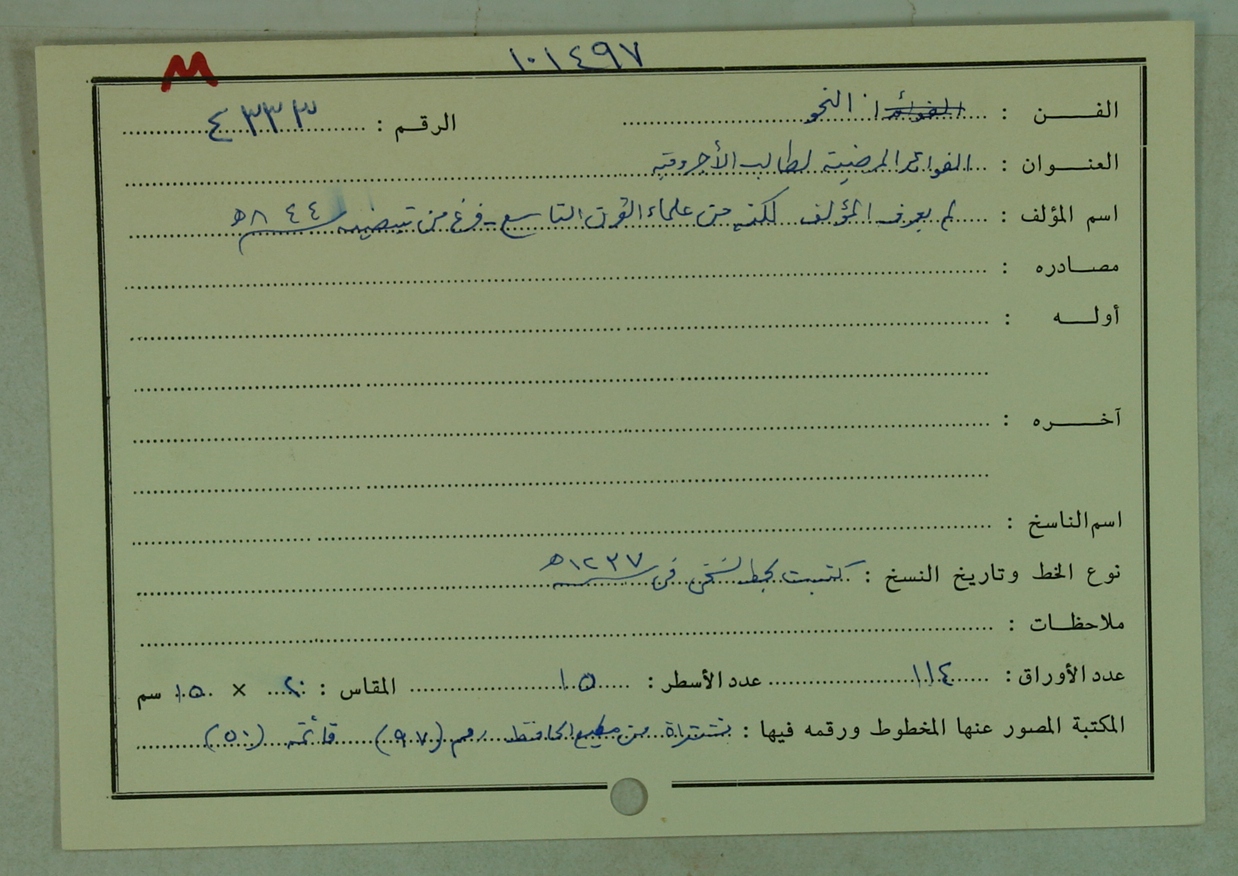 ١٠١٤٩٧
M
الفـــن : الفوائد النحو الرقـم : ٤٣٣٣
العنـوان : الفوائد المرضية لطالب الأجرومية
اسم المؤلف : لم يعرف المؤلف لكنه من علماء القرن التاسع - فرغ من تبيضه سنة ٨٤٤ هـ
مصـادره :
أولـــه :
آخـــره :
اسم الناسخ :
نوع الخط وتاريخ النسخ : كتبت بخط نسخي في سنة ١٢٣٧ هـ
ملاحظـات :
عدد الأوراق : ١١٤ عدد الأسطر : ١٥ المقاس : ٢٠ × ١٥ سم
المكتبة المصور عنها المخطوط ورقمه فيها : مشتراة من مطيع الحافظ رقم (٩٧) قائمة (٥٠)